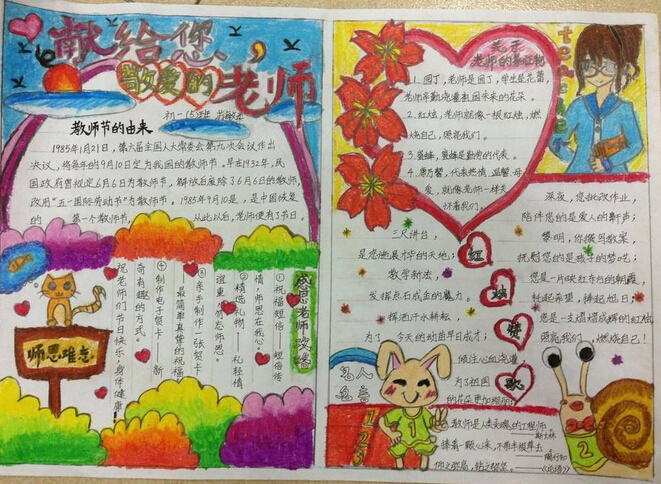 献给您，
敬爱的老师
初一(5)班
教师节的由来
1985年1月21日，第六届全国人大常委会第九次会议作出
决议，将每年的9月10日定为我国的教师节。早在1932年，民
国政府曾规定6月6日为教师节，解放后废除了6月6日的教师节，
改用“五一国际劳动节”为教师节。1985年9月10是，是中国恢复
的 第一个教师节， 从此以后，老师便有了节日。
感恩老师攻略
①祝福短信——短信传
情，师恩在我心。
②精选礼物 礼轻情
谊重，勿忘师恩。
③亲手制作一张贺卡——
最简单真挚的祝福
④制作电子贺卡——新
奇有趣的方式。
祝老师们节日快乐，身体健康！
师恩难忘
关于
老师的象征物
1.园丁，老师是园丁，学生是花蕾，
老师辛勤浇灌祖国未来的花朵。
2.红烛，老师就像一根红烛，燃
烧自己，照亮我们。
3.蜜蜂，蜜蜂是勤劳的代表。
4.康乃馨，代表热情，温馨，母
爱，就像老师一样关
怀着我们。
teacher
三尺讲台，
是您施展才华的天地；
教学新法，
发挥点石成金的魔力。
挥洒汗水耕耘，
为了 今天的幼苗早日成才；
倾注心血浇灌
为了祖国
的花朵更加绚丽！
红
烛
赞
歌
深夜，您批改作业，
陪伴您的是爱人的鼾声；
黎明，你撰写教案，
抚慰您的是孩子的梦呓；
您是一片映红东方的朝霞，
托起希望，捧起旭日；
您是一支熠熠成辉的红烛
照亮我们，燃烧自己！
名人
名言
123
教师是人类灵魂的工程师
——斯大林
捧着一颗心来，不带半根草去
——陶行知
1
2